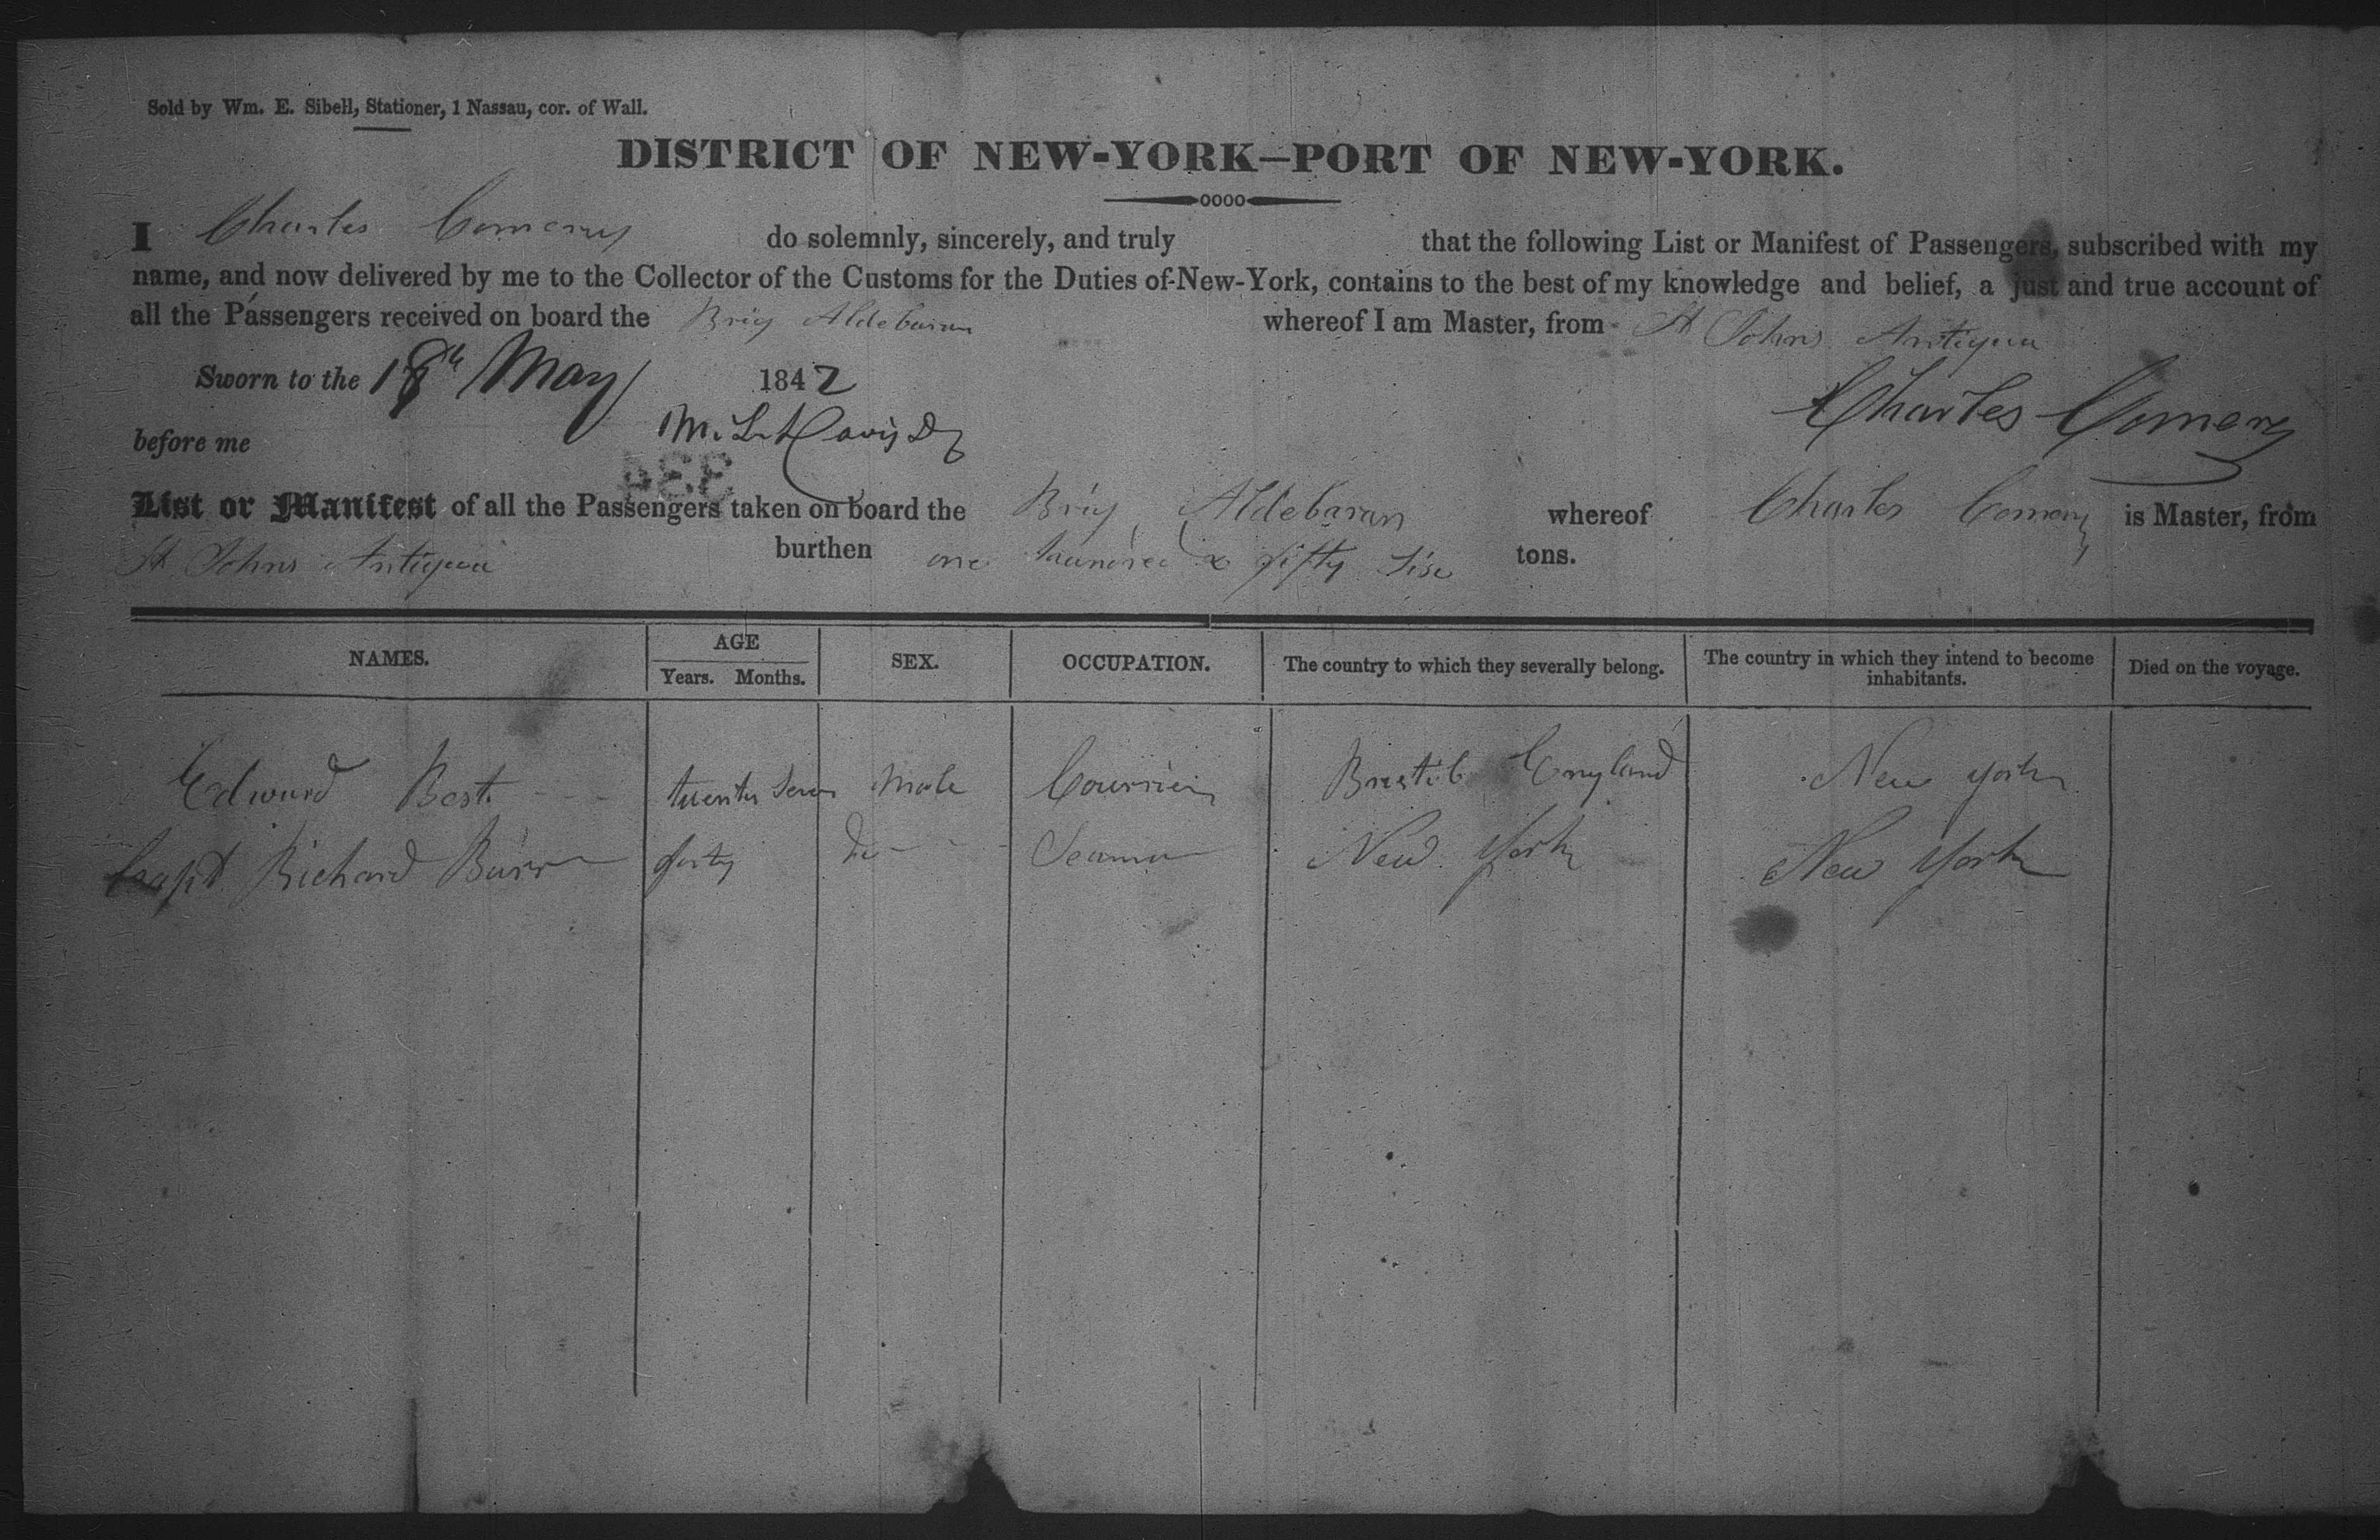 Sold by Wm. E. Sibell, Stationer, 1 Nassau, cor. of Wall.
DISTRICT OF NEW-YORK—PORT OF NEW-YORK.
I Charles Comery do solemnly, sincerely, and truly that the following List or Manifest of Passengers, subscribed with my
name, and now delivered by me to the Collector of the Customs for the Duties of New-York, contains to the best of my knowledge and belief, a just and true account of
all the Passengers received on board the Brig Aldebaran whereof I am Master, from St Johns Antigua
Sworn to the 18th May 1842
Charles Comery
before me M. L. Davis
334
List or Manifest of all the Passengers taken on board the Brig Aldebaran whereof Charles Comery is Master, from
St Johns Antigua burthen one hundred & fifty six tons.
NAMES. AGE Years. Months. SEX. OCCUPATION. The country to which they severally belong. The country in which they intend to become inhabitants. Died on the voyage.
Edward Best twenty seven Male Courrier England New york
Capt Richard Burr forty Do Seaman New York New York